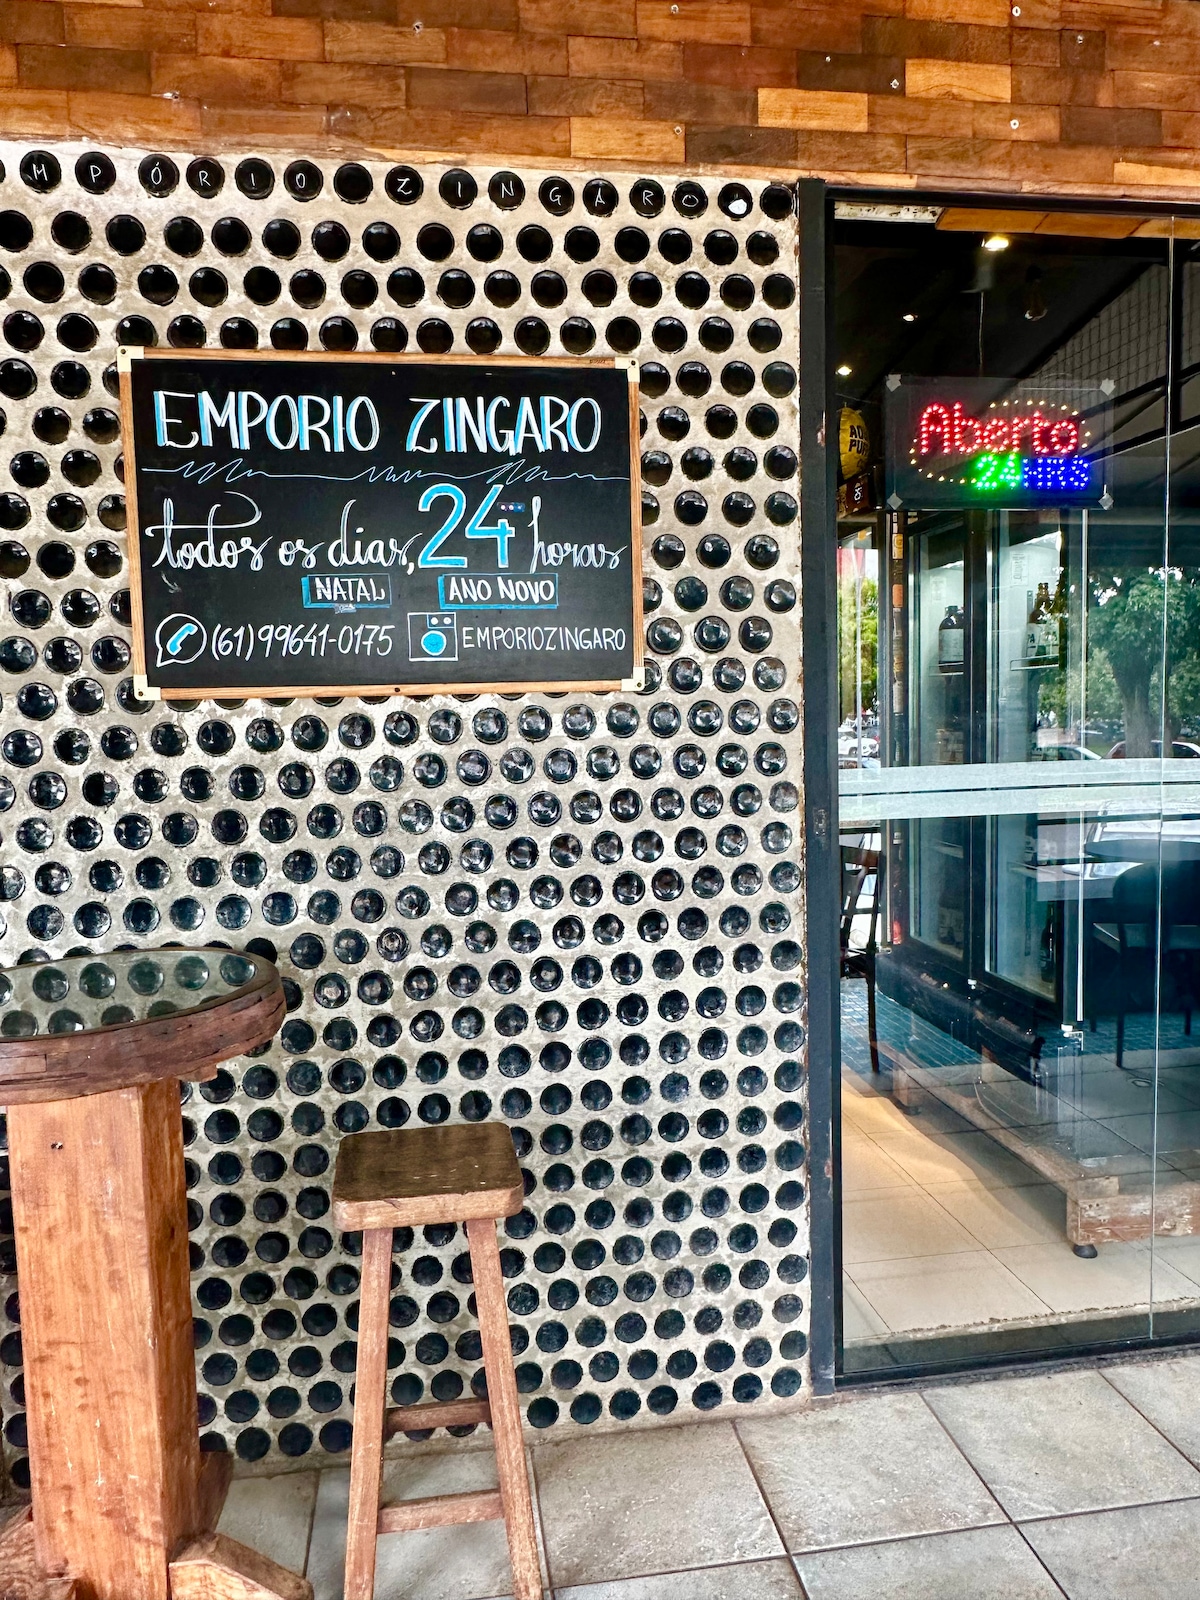 MPÓRIO ZINGARO
EMPORIO ZINGARO
todos os dias, 24 horas
NATAL ANO NOVO
(61) 99641-0175 EMPORIOZINGARO
Aberto
24HRS